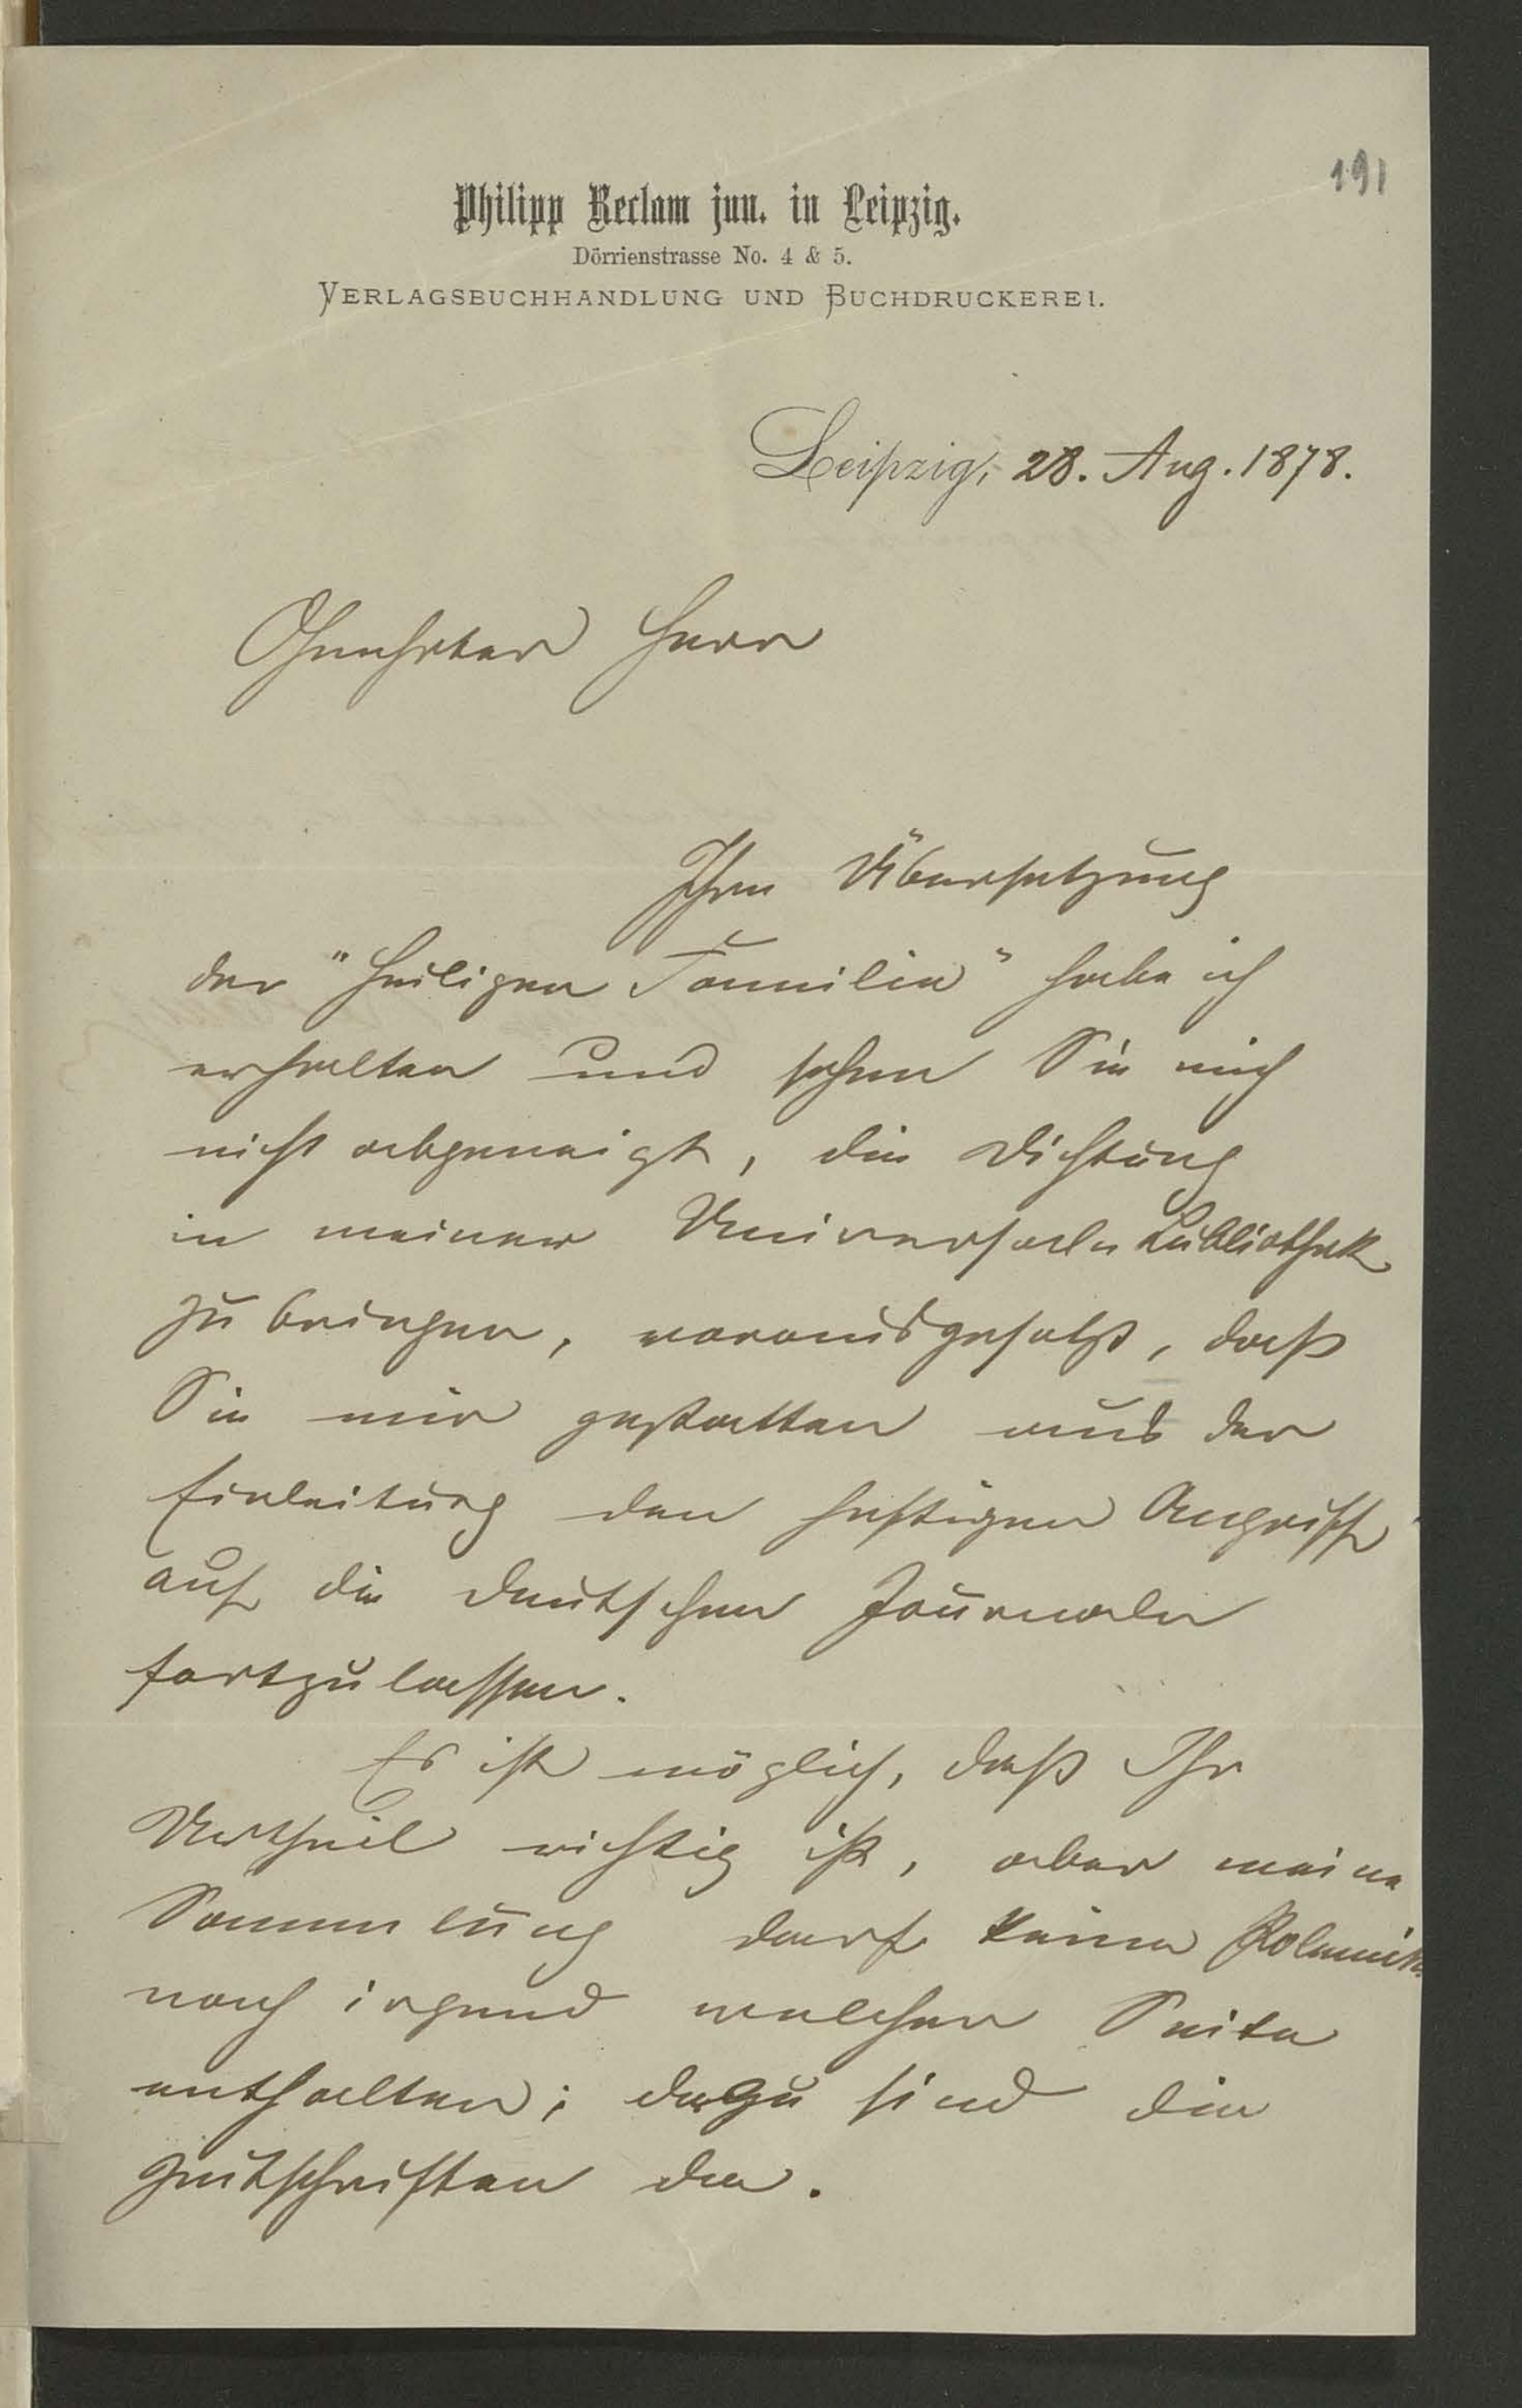 191
Philipp Reclam jun. in Leipzig.
Dörrienstrasse No. 4 & 5.
VERLAGSBUCHHANDLUNG UND BUCHDRUCKEREI.
Leipzig, 28. Aug. 1878.
Geehrter Herr
Ihre Übersetzung
der "Heiligen Familie" habe ich
erhalten und sehen Sie mich
nicht abgeneigt, die Dichtung
in meiner Universal Bibliothek
zu bringen, vorausgesetzt, daß
Sie mir gestatten aus der
Einleitung den heftigen Angriff
auf die deutschen Journale
fortzulassen.
Es ist möglich, daß Ihr
Urtheil richtig ist, aber meine
Sammlung darf keine Polemik
nach irgend welcher Seite
enthalten; dazu sind die
Zeitschriften da.